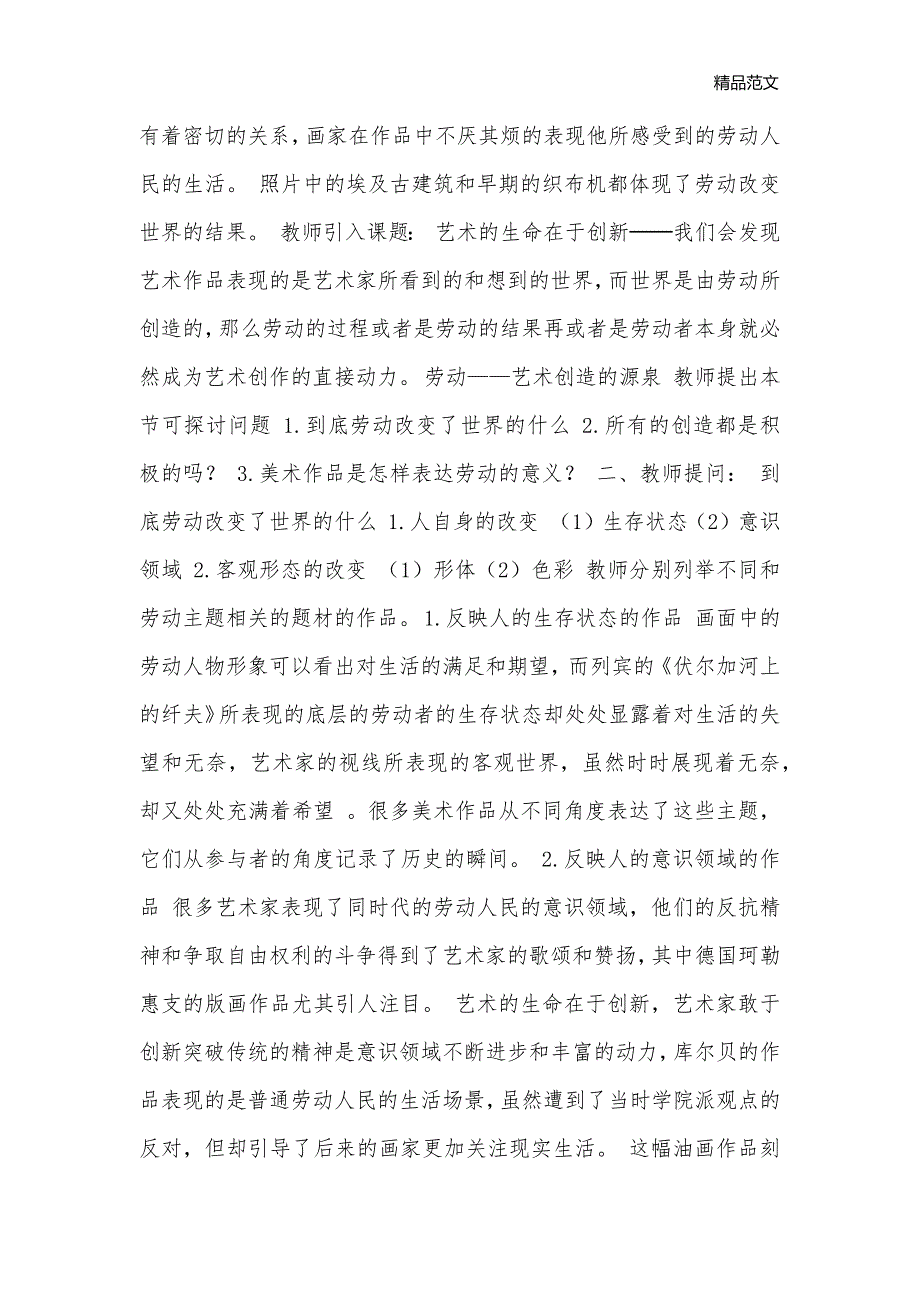 精品范文
有着密切的关系，画家在作品中不厌其烦的表现他所感受到的劳动人
民的生活。 照片中的埃及古建筑和早期的织布机都体现了劳动改变
世界的结果。 教师引入课题： 艺术的生命在于创新━━我们会发现
艺术作品表现的是艺术家所看到的和想到的世界，而世界是由劳动所
创造的，那么劳动的过程或者是劳动的结果再或者是劳动者本身就必
然成为艺术创作的直接动力。劳动——艺术创造的源泉 教师提出本
节可探讨问题 1.到底劳动改变了世界的什么 2.所有的创造都是积
极的吗？ 3.美术作品是怎样表达劳动的意义？ 二、教师提问： 到
底劳动改变了世界的什么 1.人自身的改变 （1）生存状态（2）意识
领域 2.客观形态的改变 （1）形体（2）色彩 教师分别列举不同和
劳动主题相关的题材的作品。1.反映人的生存状态的作品 画面中的
劳动人物形象可以看出对生活的满足和期望，而列宾的《伏尔加河上
的纤夫》所表现的底层的劳动者的生存状态却处处显露着对生活的失
望和无奈，艺术家的视线所表现的客观世界，虽然时时展现着无奈，
却又处处充满着希望 。很多美术作品从不同角度表达了这些主题，
它们从参与者的角度记录了历史的瞬间。 2.反映人的意识领域的作
品 很多艺术家表现了同时代的劳动人民的意识领域，他们的反抗精
神和争取自由权利的斗争得到了艺术家的歌颂和赞扬，其中德国珂勒
惠支的版画作品尤其引人注目。 艺术的生命在于创新，艺术家敢于
创新突破传统的精神是意识领域不断进步和丰富的动力，库尔贝的作
品表现的是普通劳动人民的生活场景，虽然遭到了当时学院派观点的
反对，但却引导了后来的画家更加关注现实生活。 这幅油画作品刻